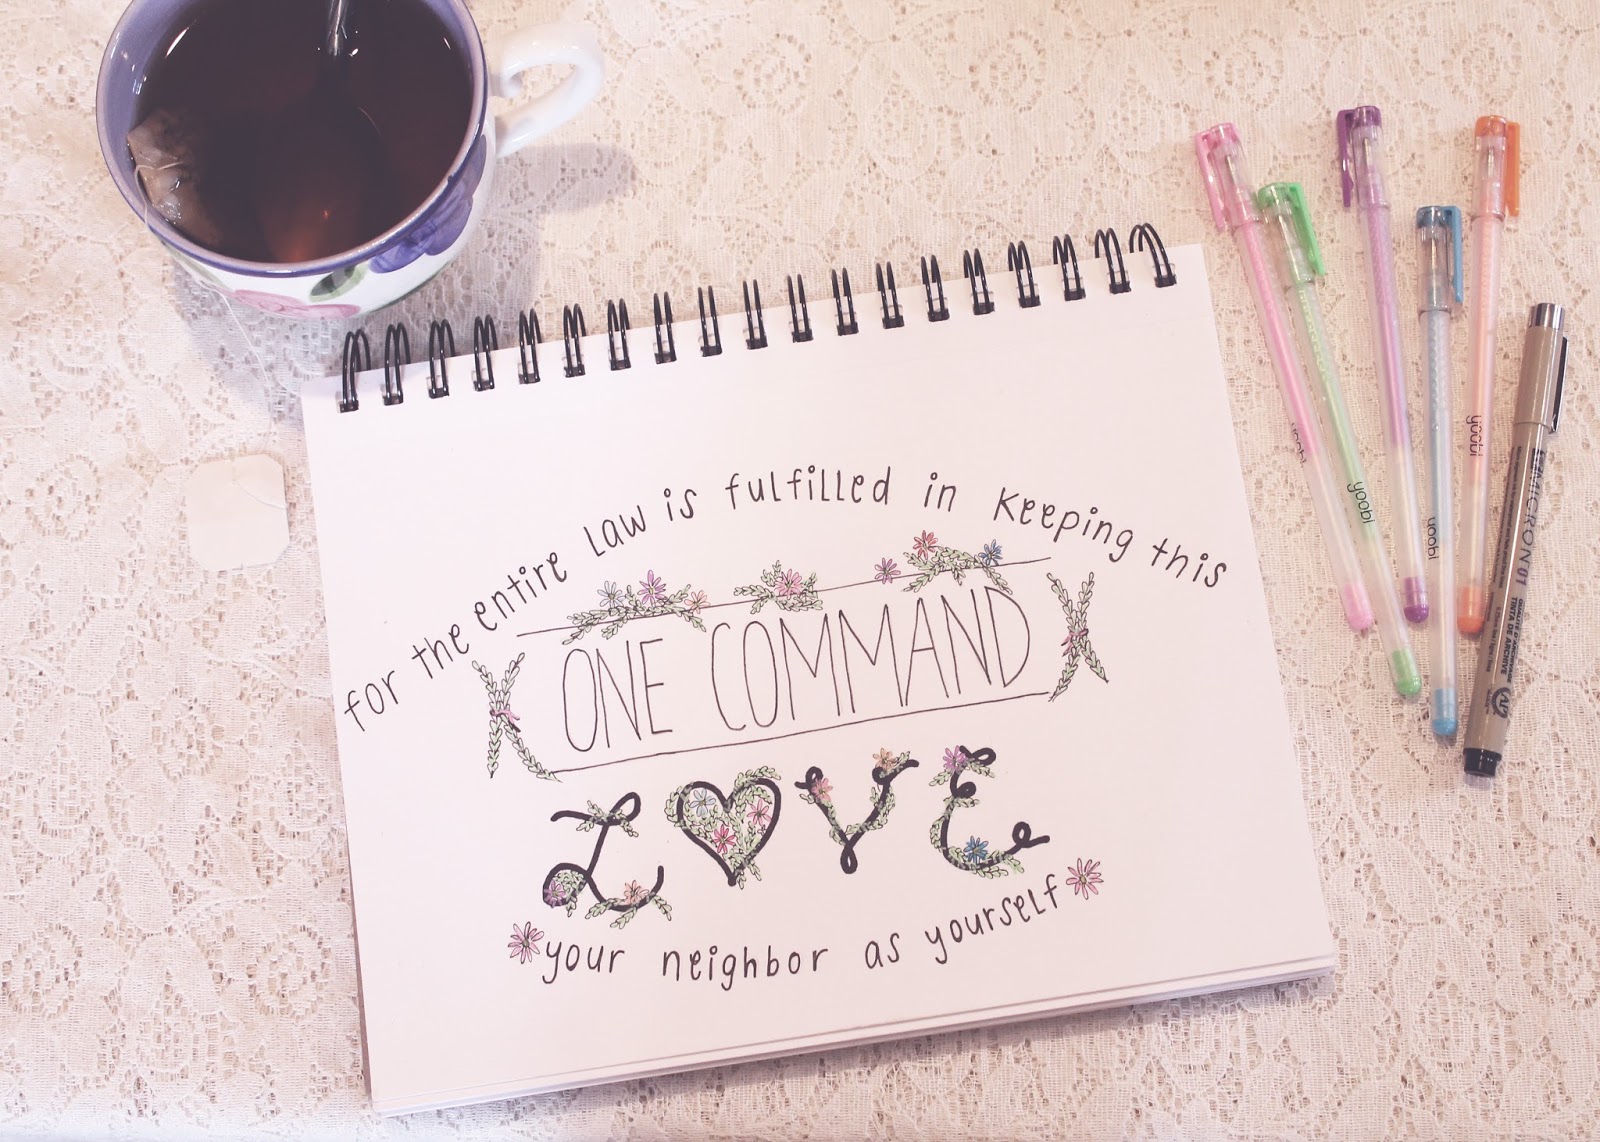 for the entire Law is fulfilled in keeping this
ONE COMMAND
LOVE
your neighbor as yourself
yoobi
yoobi
yoobi
yoobi
MICRON 01